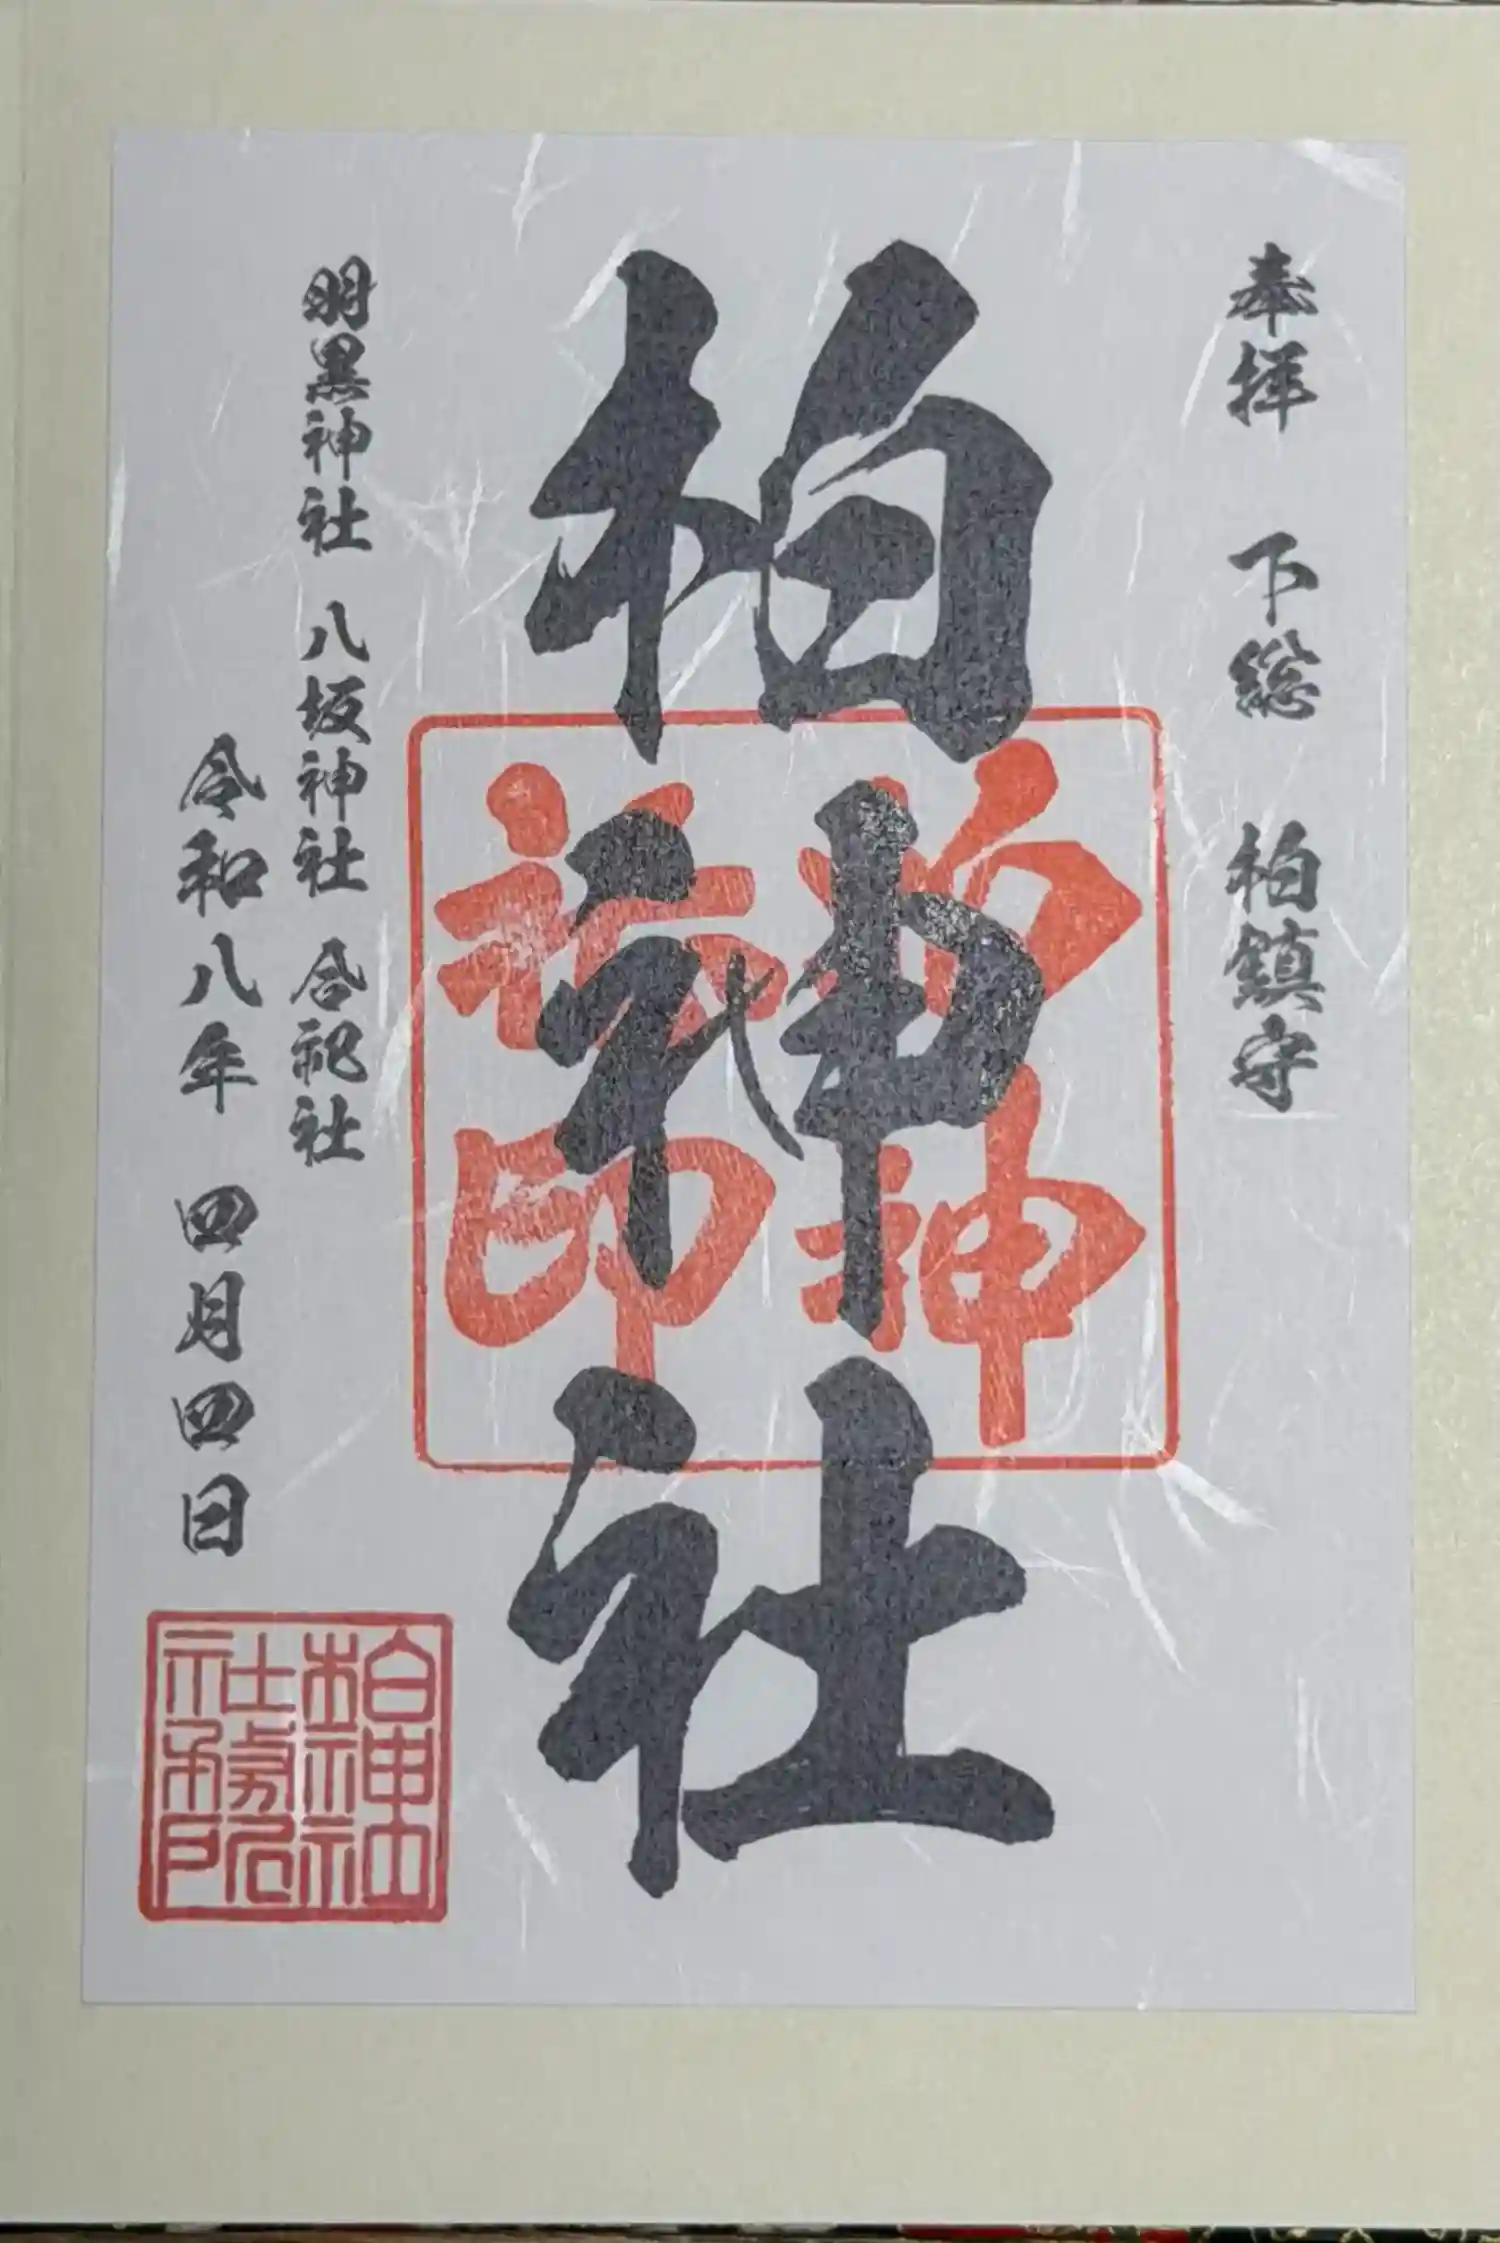 奉拝 下総 柏鎮守
柏神社
柏神
社印
明黒神社 八坂神社 合祀社
令和八年 四月四日
柏神社
社務所